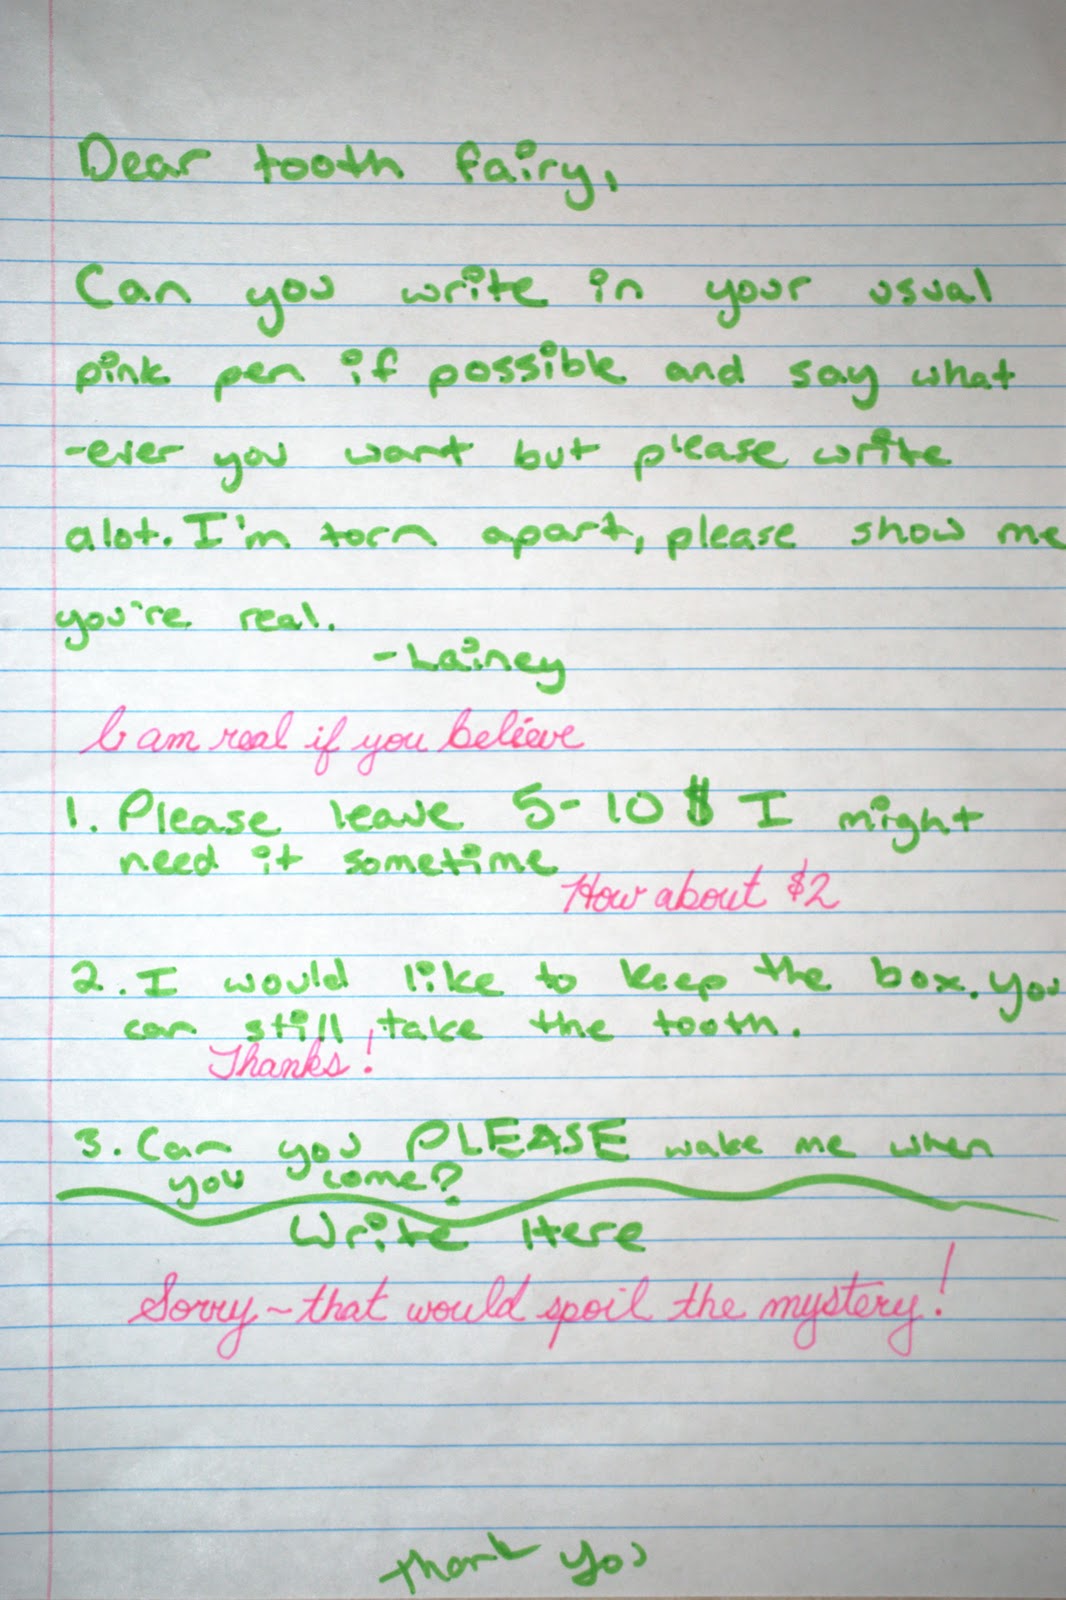 Dear tooth fairy,
Can you write in your usual
pink pen if possible and say what
-ever you want but please write
alot. I'm torn apart, please show me
you're real.
-Lainey
I am real if you believe
1. Please leave 5-10 $ I might
need it sometime
How about $2
2. I would like to keep the box. You
can still take the tooth.
Thanks!
3. Can you PLEASE wake me when
you come?
Write Here
Sorry ~ that would spoil the mystery!
thank you